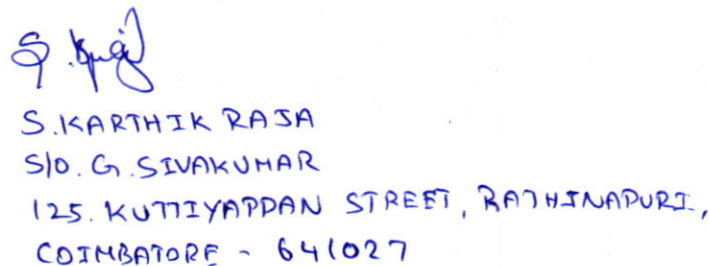 S.KARTHIK RAJA
S/O. G. SIVAKUMAR
125. KUTTIYAPPAN STREET, RATHINAPURI,
COIMBATORE - 641027